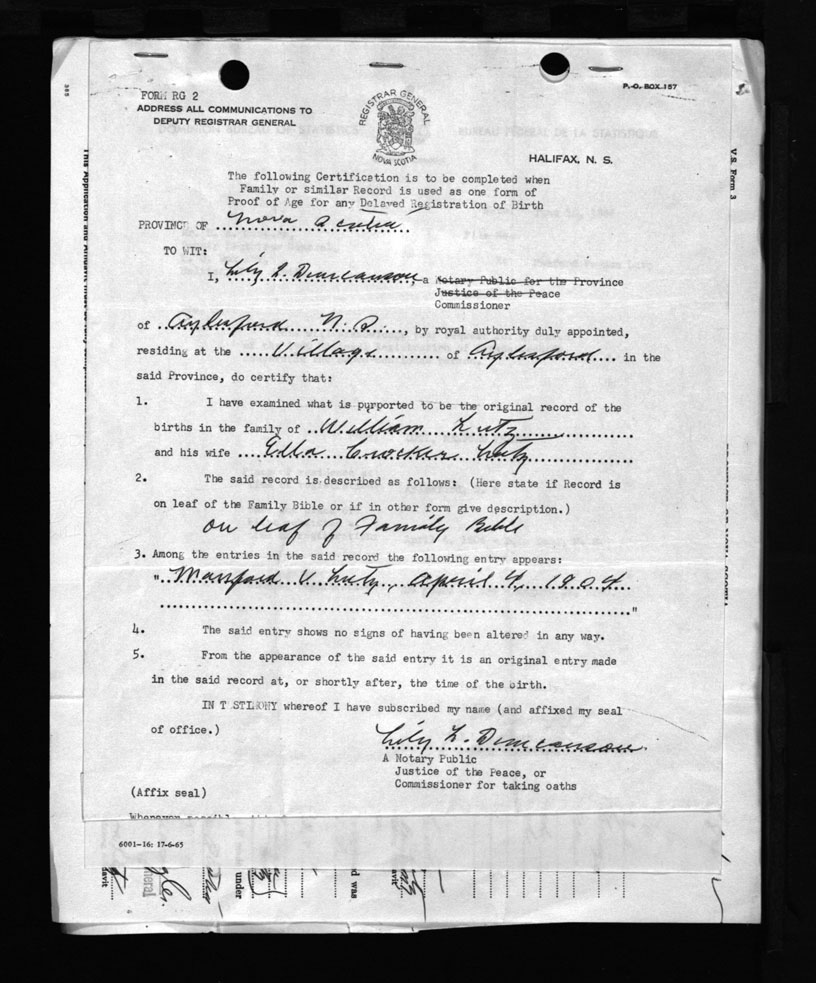 FORM RG 2
ADDRESS ALL COMMUNICATIONS TO
DEPUTY REGISTRAR GENERAL
REGISTRAR GENERAL
NOVA SCOTIA
P. O. BOX 157
HALIFAX, N. S.
V.S. Form 3
The following Certification is to be completed when
Family or similar Record is used as one form of
Proof of Age for any Delayed Registration of Birth
PROVINCE OF Nova Scotia
TO WIT:
I, Lily L. Duncanson, a Notary Public for the Province
Justice of the Peace
Commissioner
of Aylesford N.S., by royal authority duly appointed,
residing at the Village of Aylesford in the
said Province, do certify that:
1. I have examined what is purported to be the original record of the
births in the family of William Lutz
and his wife Ella Crocker Lutz
2. The said record is described as follows: (Here state if Record is
on leaf of the Family Bible or if in other form give description.)
On leaf of Family Bible
3. Among the entries in the said record the following entry appears:
" Manford V. Lutz, April 4, 1904
"
4. The said entry shows no signs of having been altered in any way.
5. From the appearance of the said entry it is an original entry made
in the said record at, or shortly after, the time of the birth.
IN T STIMONY whereof I have subscribed my name (and affixed my seal
of office.)
Lily L. Duncanson.
A Notary Public
Justice of the Peace, or
Commissioner for taking oaths
(Affix seal)
Whenever
6001-16: 17-6-65
under
d was